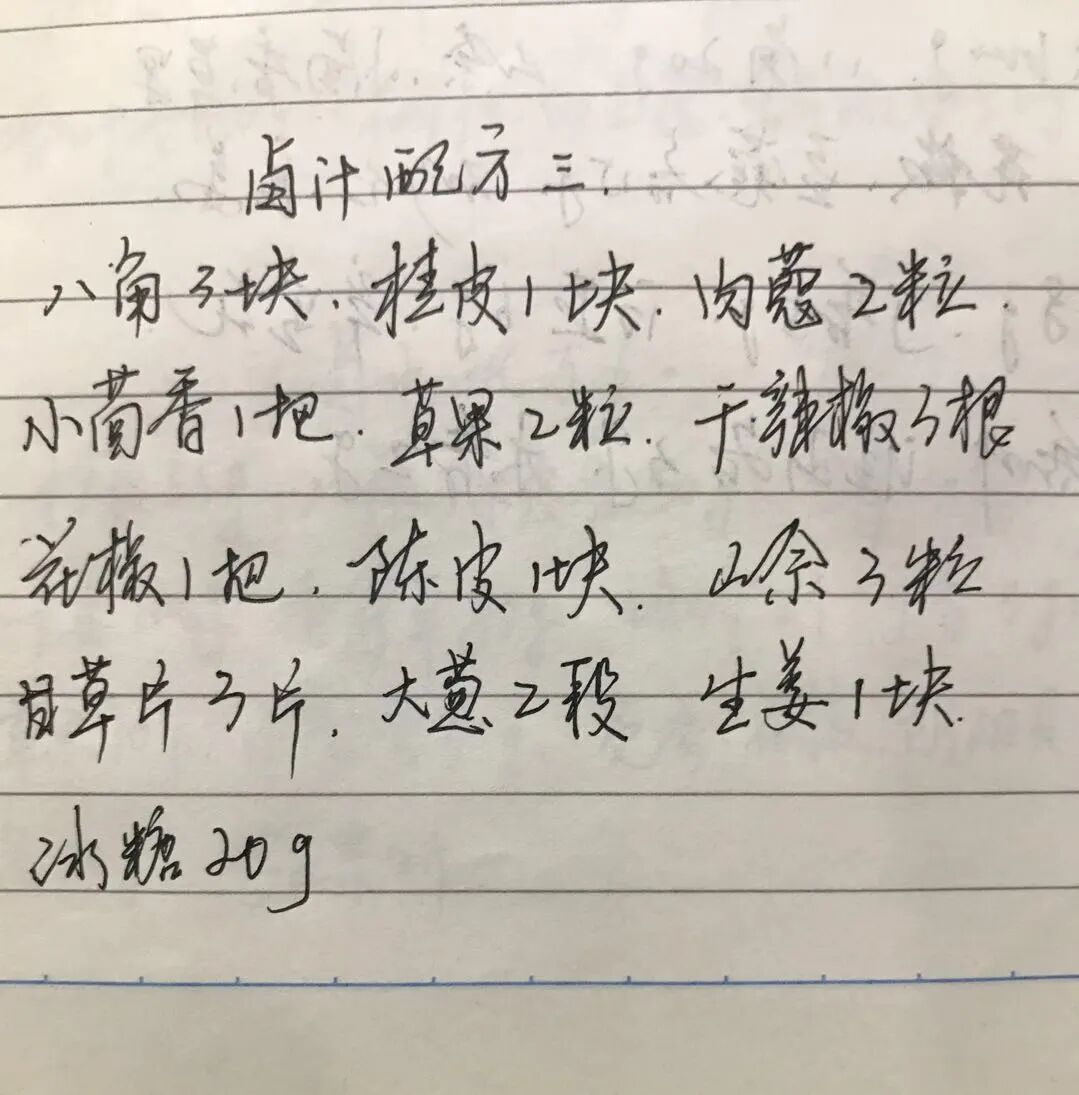 卤汁配方三.
八角3块.桂皮1块.肉蔻2粒.
小茴香1把.草果2粒.干辣椒3根
花椒1把.陈皮1块.山奈3粒
甘草片3片.大葱2段 生姜1块.
冰糖20g